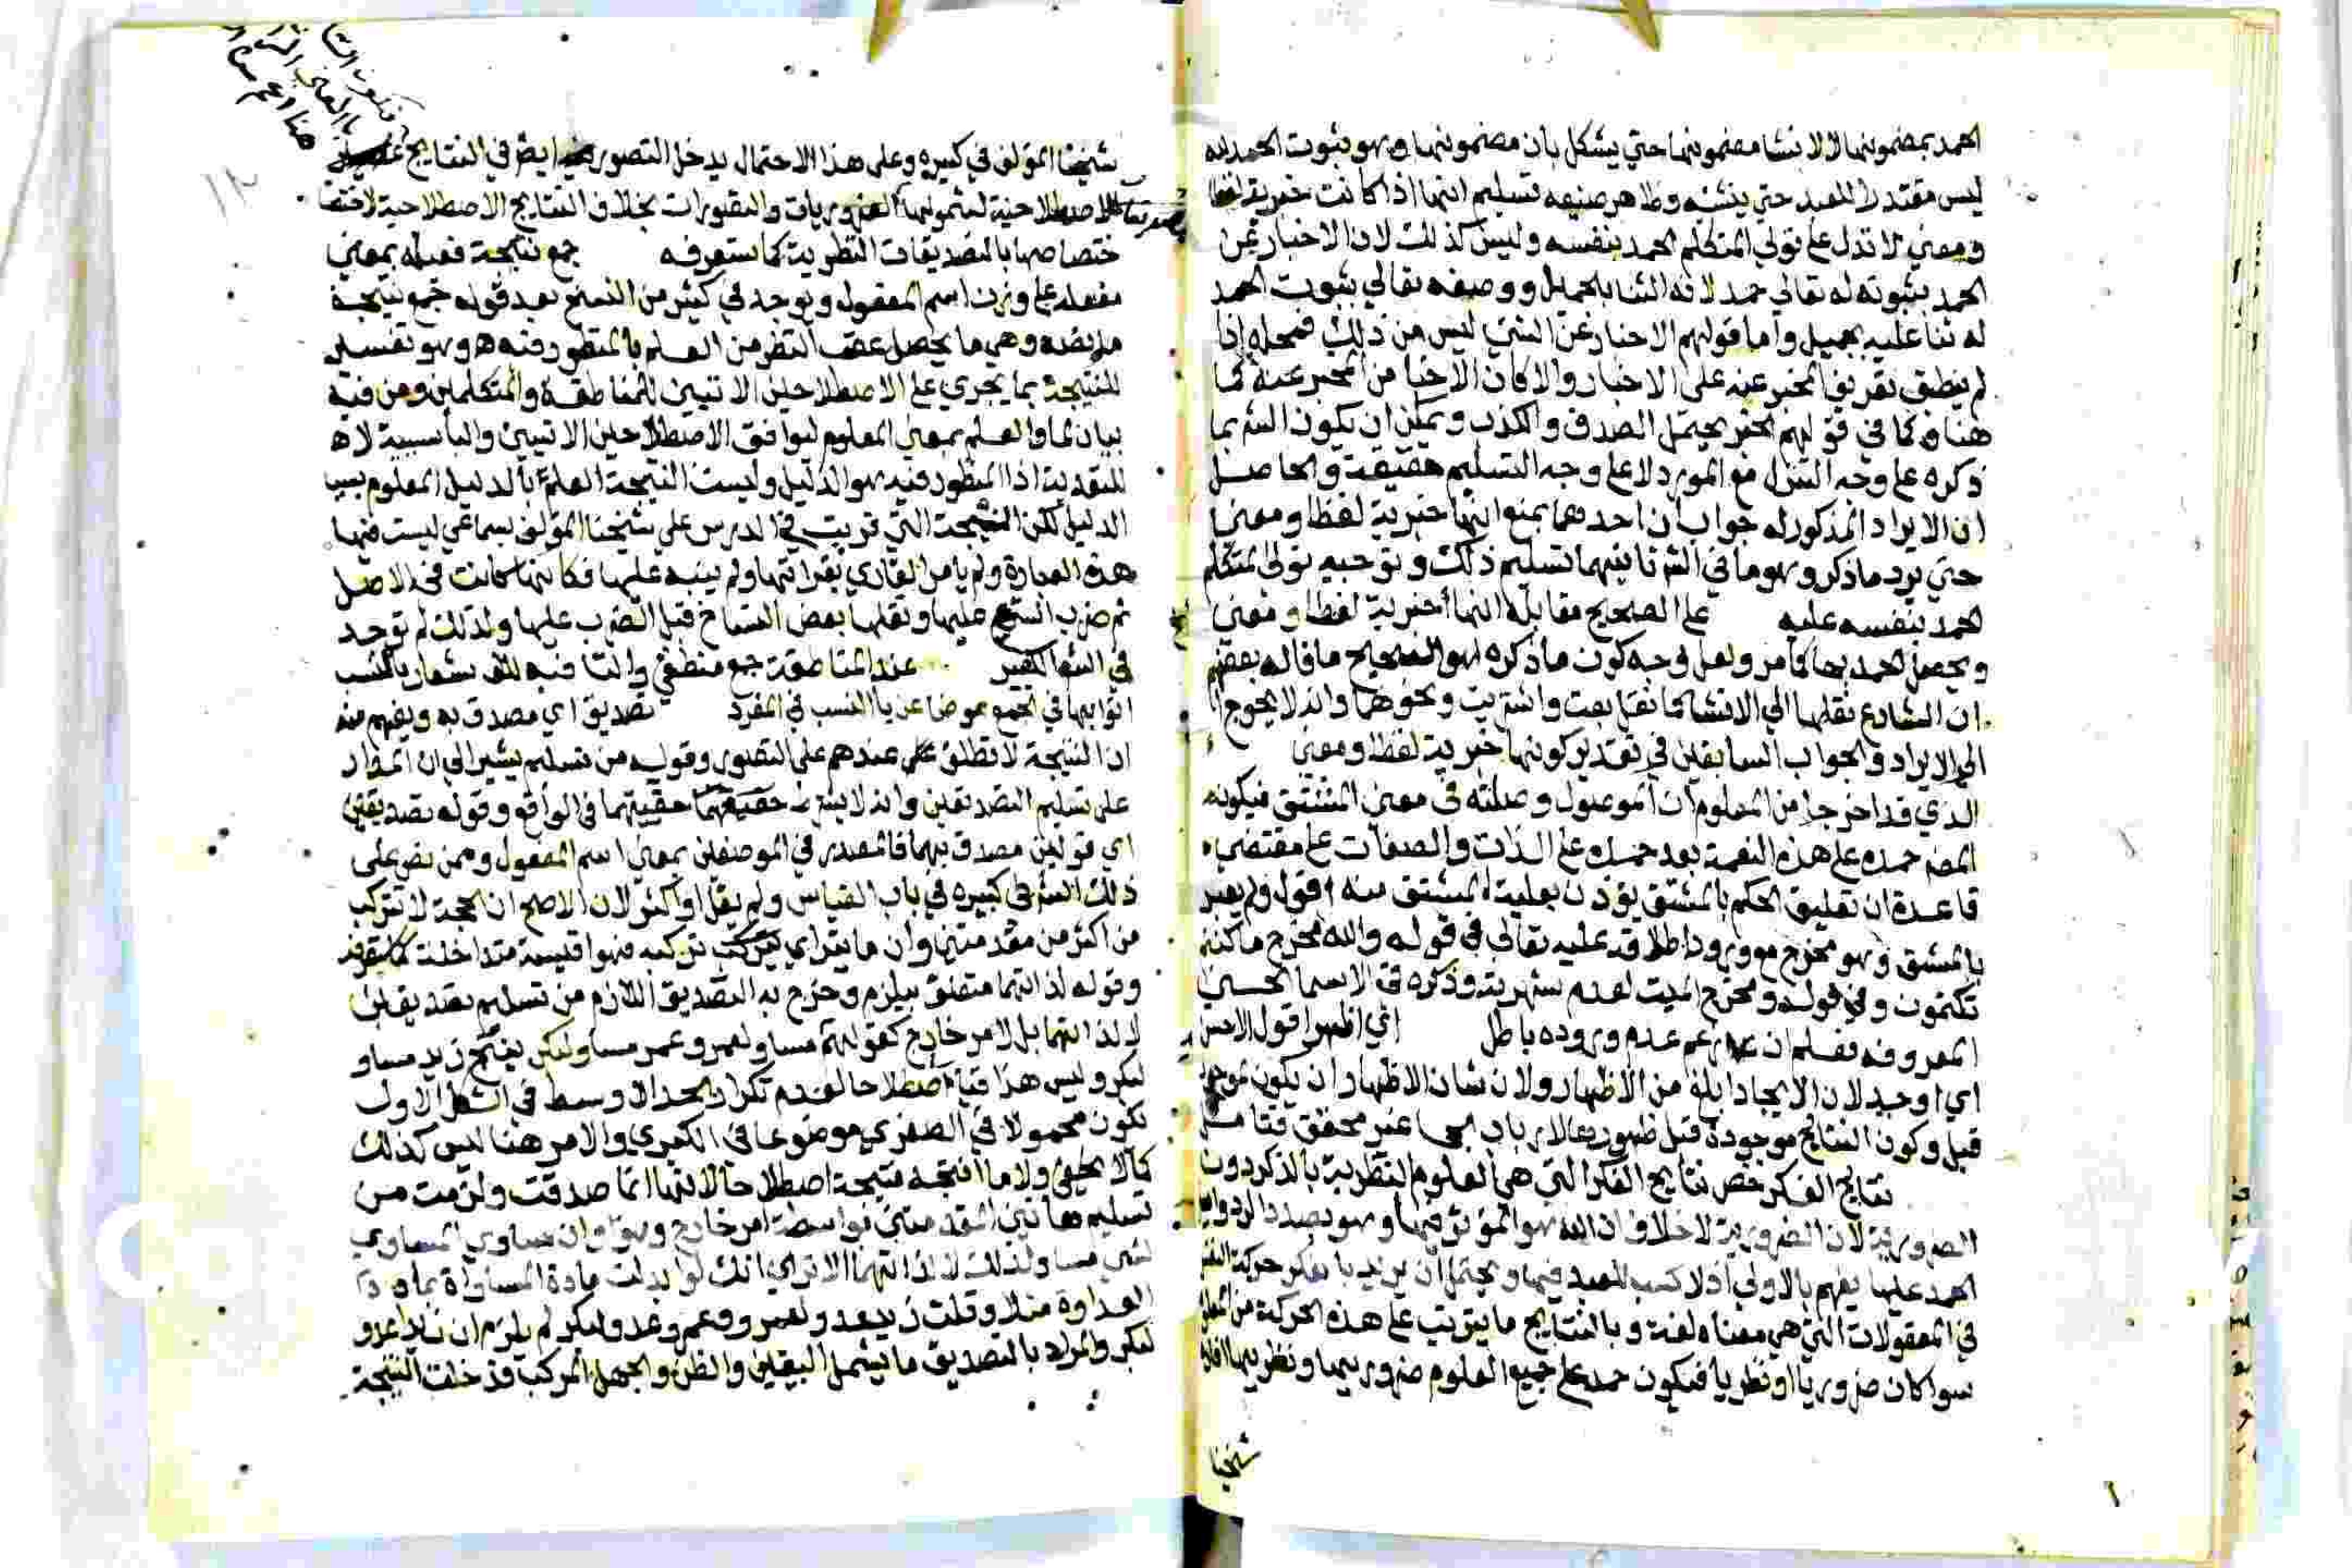 الحمد بمضمونها لا لانشا مضمونها حتي يشكل بان مضمونها وهو ثبوت الحمد لله
ليس مقتدرا للعبد حتي ينشئه وظاهر صنيعه تسليم انها اذا كانت خبرية لفظا
ومعني لا تدل علي تولي المتكلم الحمد بنفسه وليس كذلك لان الاخبار عن
الحمد بثبوته له تعالي حمد لانه الثنا بالجميل ووصفه تعالي بثبوت الحمد
له ثنا عليه بجميل واما قولهم الاخبار عن الشي ليس من ذلك فمحله اذا
لم ينطبق تعريف المخبر عنه علي الاخبار والا كان الاخبا من المخبر عنه كما
هنا وكما في قولهم الخبر يحتمل الصدق والكذب ويمكن ان يكون الش بما
ذكره علي وجه التنزل مع المورد لا علي وجه التسليم حقيقة والحاصل
ان الايراد المذكور له جوابان احدهما بمنع انها خبرية لفظا ومعني
حتي يرد ما ذكر وهو ما في الش ثانيهما تسليم ذلك وتوجيه تولي المتكلم
الحمد بنفسه عليه علي الصحيح مقابله انها خبرية لفظا ومعني
ويحصل الحمد بها كما مر ولعل وجه كون ما ذكره هو الصحيح ما قاله بعضهم
ان الشارع نقلها الي الانشا كما نقل بعت واشتريت ونحوهما واذ لا يحوج
الي الايراد والجواب السابقين في تقدير كونها خبرية لفظا ومعني
الذي قد اخرجا من المعلوم ان الموصول وصلته في معني المشتق فيكون
المص حمده علي هذه النعمة بعد حمده علي الذات والصفات علي مقتضي
قاعدة ان تعليق الحكم بالمشتق يؤذن بعلية المشتق منه اقول ولم يعبر
بالمشتق وهو مخرج مع ورود اطلاقه عليه تعالي في قوله والله مخرج ما كنتم
تكتمون وفي قوله ومخرج الميت لعدم شهرته وذكره في الاسما الحسني
المعروفه فعلم ان زعم عدم وروده باطل اي اظهرا قول الاحسن
اي اوجد لان الايجاد ابلغ من الاظهار ولان شان الاظهار ان يكون لموجود
قبل وكون النتائج موجودة قبل ظهورها لارباب الحجا غير محقق فتامل
نتايج الفكر خص نتايج الفكر التي هي العلوم النظرية بالذكر دون
الضرورية لان الضرورية لا خلاف ان الله هو المؤثر فيها وهو بصدد الرد ولان
الحمد عليها يفهم بالاولي اذ لا كسب للعبد فيها ويحتمل ان يريد بالفكر حركة النفس
في المعقولات التي هي معناه لغة وبالنتايج ما يترتب علي هذه الحركة من العلم
سوا كان ضروريا او نظريا فيكون حمد علي جميع العلوم ضروريها ونظريها افاده
شيخنا
شيخنا المؤلف في كبيره وعلي هذا الاحتمال يدخل التصور ايض في النتايج
الاصطلاحية لشمولها الضروريات والتصورات بخلاف النتايج الاصطلاحية
ختصاصها بالتصديقات النظرية كما ستعرفه جمع نتيجة فعيلة بمعني
مفعلة علي وزن اسم المفعول ويوجد في كثير من النسخ بعد قوله جمع نتيجة
ما نصه وهي ما يحصل عقب النظر من العلم بالمنظور فيه ه وهو تفسير
للنتيجة بما يجري علي الاصطلاحين الاتيين للمناطقة والمتكلمين ومن فيه
بيان لما والعلم بمعني المعلوم ليوافق الاصطلاحين الاتيين والبا سببية لا
للتعدية اذ المنظور فيه هو الدليل وليست النتيجة العلم بالدليل المعلوم بسبب
الدليل لكن النسخة التي قريت في الدرس علي شيخنا المؤلف بسماعي ليست فيها
هذه العبارة ولم يامر القاري بقراتها ولم ينبه عليها فكانها كانت في الاصل
ثم ضرب الشيخ عليها ونقلها بعض النساخ قبل الضرب عليها ولذلك لم توجد
في الش الكبير عند المناطقة جمع منطقي والتا فيه للاشعار بالنسب
اتوا بها في الجمع عوضا عن يا النسب في المفرد تصديق اي مصدق به ويفهم منه
ان النتيجة لا تطلق عندهم علي التصور وقوله من تسليم يشير الي ان المدار
علي تسليم التصديقين واذ لا يشترط حقيتهما في الواقع وقوله تصديقين
اي قولين مصدق بهما فالمصدر في الموضعين بمعني اسم المفعول وممن نص علي
ذلك الش في كبيره في باب القياس ولم يقل او اكثر لان الاصح ان الحجة لا تتركب
من اكثر من مقدمتين وان ما يترااي تركبه فهو اقيسة متداخلة كما ستعرفه
وقوله لذاتهما متعلق بيلزم وخرج به التصديق اللازم من تسليم تصديقين
لا لذاتهما بل لامر خارج كقولهم مساو لعمرو وعمر مساو لبكر ينتج زيد مساو
لبكر وليس هذا قياسا اصطلاحا لعدم تكرار الحد الاوسط في الشكل الاول
تكون محمولا في الصغري موضوعا في الكبري والامر هنا ليس كذلك
كما لا يخفي ولا ما انتجه نتيجة اصطلاحا لانها انما صدقت ولزمت من
تسليم هاتين المقدمتين بواسطة امر خارج وهو ان مساوي المساوي
لشي مساو لذلك لا لذاتهما الا تري انك لو ابدلت مادة المساواة بمادة
العداوة مثلا وقلت زيد عدو لعمرو وعمرو عدو لبكر لم يلزم ان زيدا عدو
لبكر والمراد بالتصديق ما يشمل اليقين والظن والجهل المركب فدخلت النتيجة